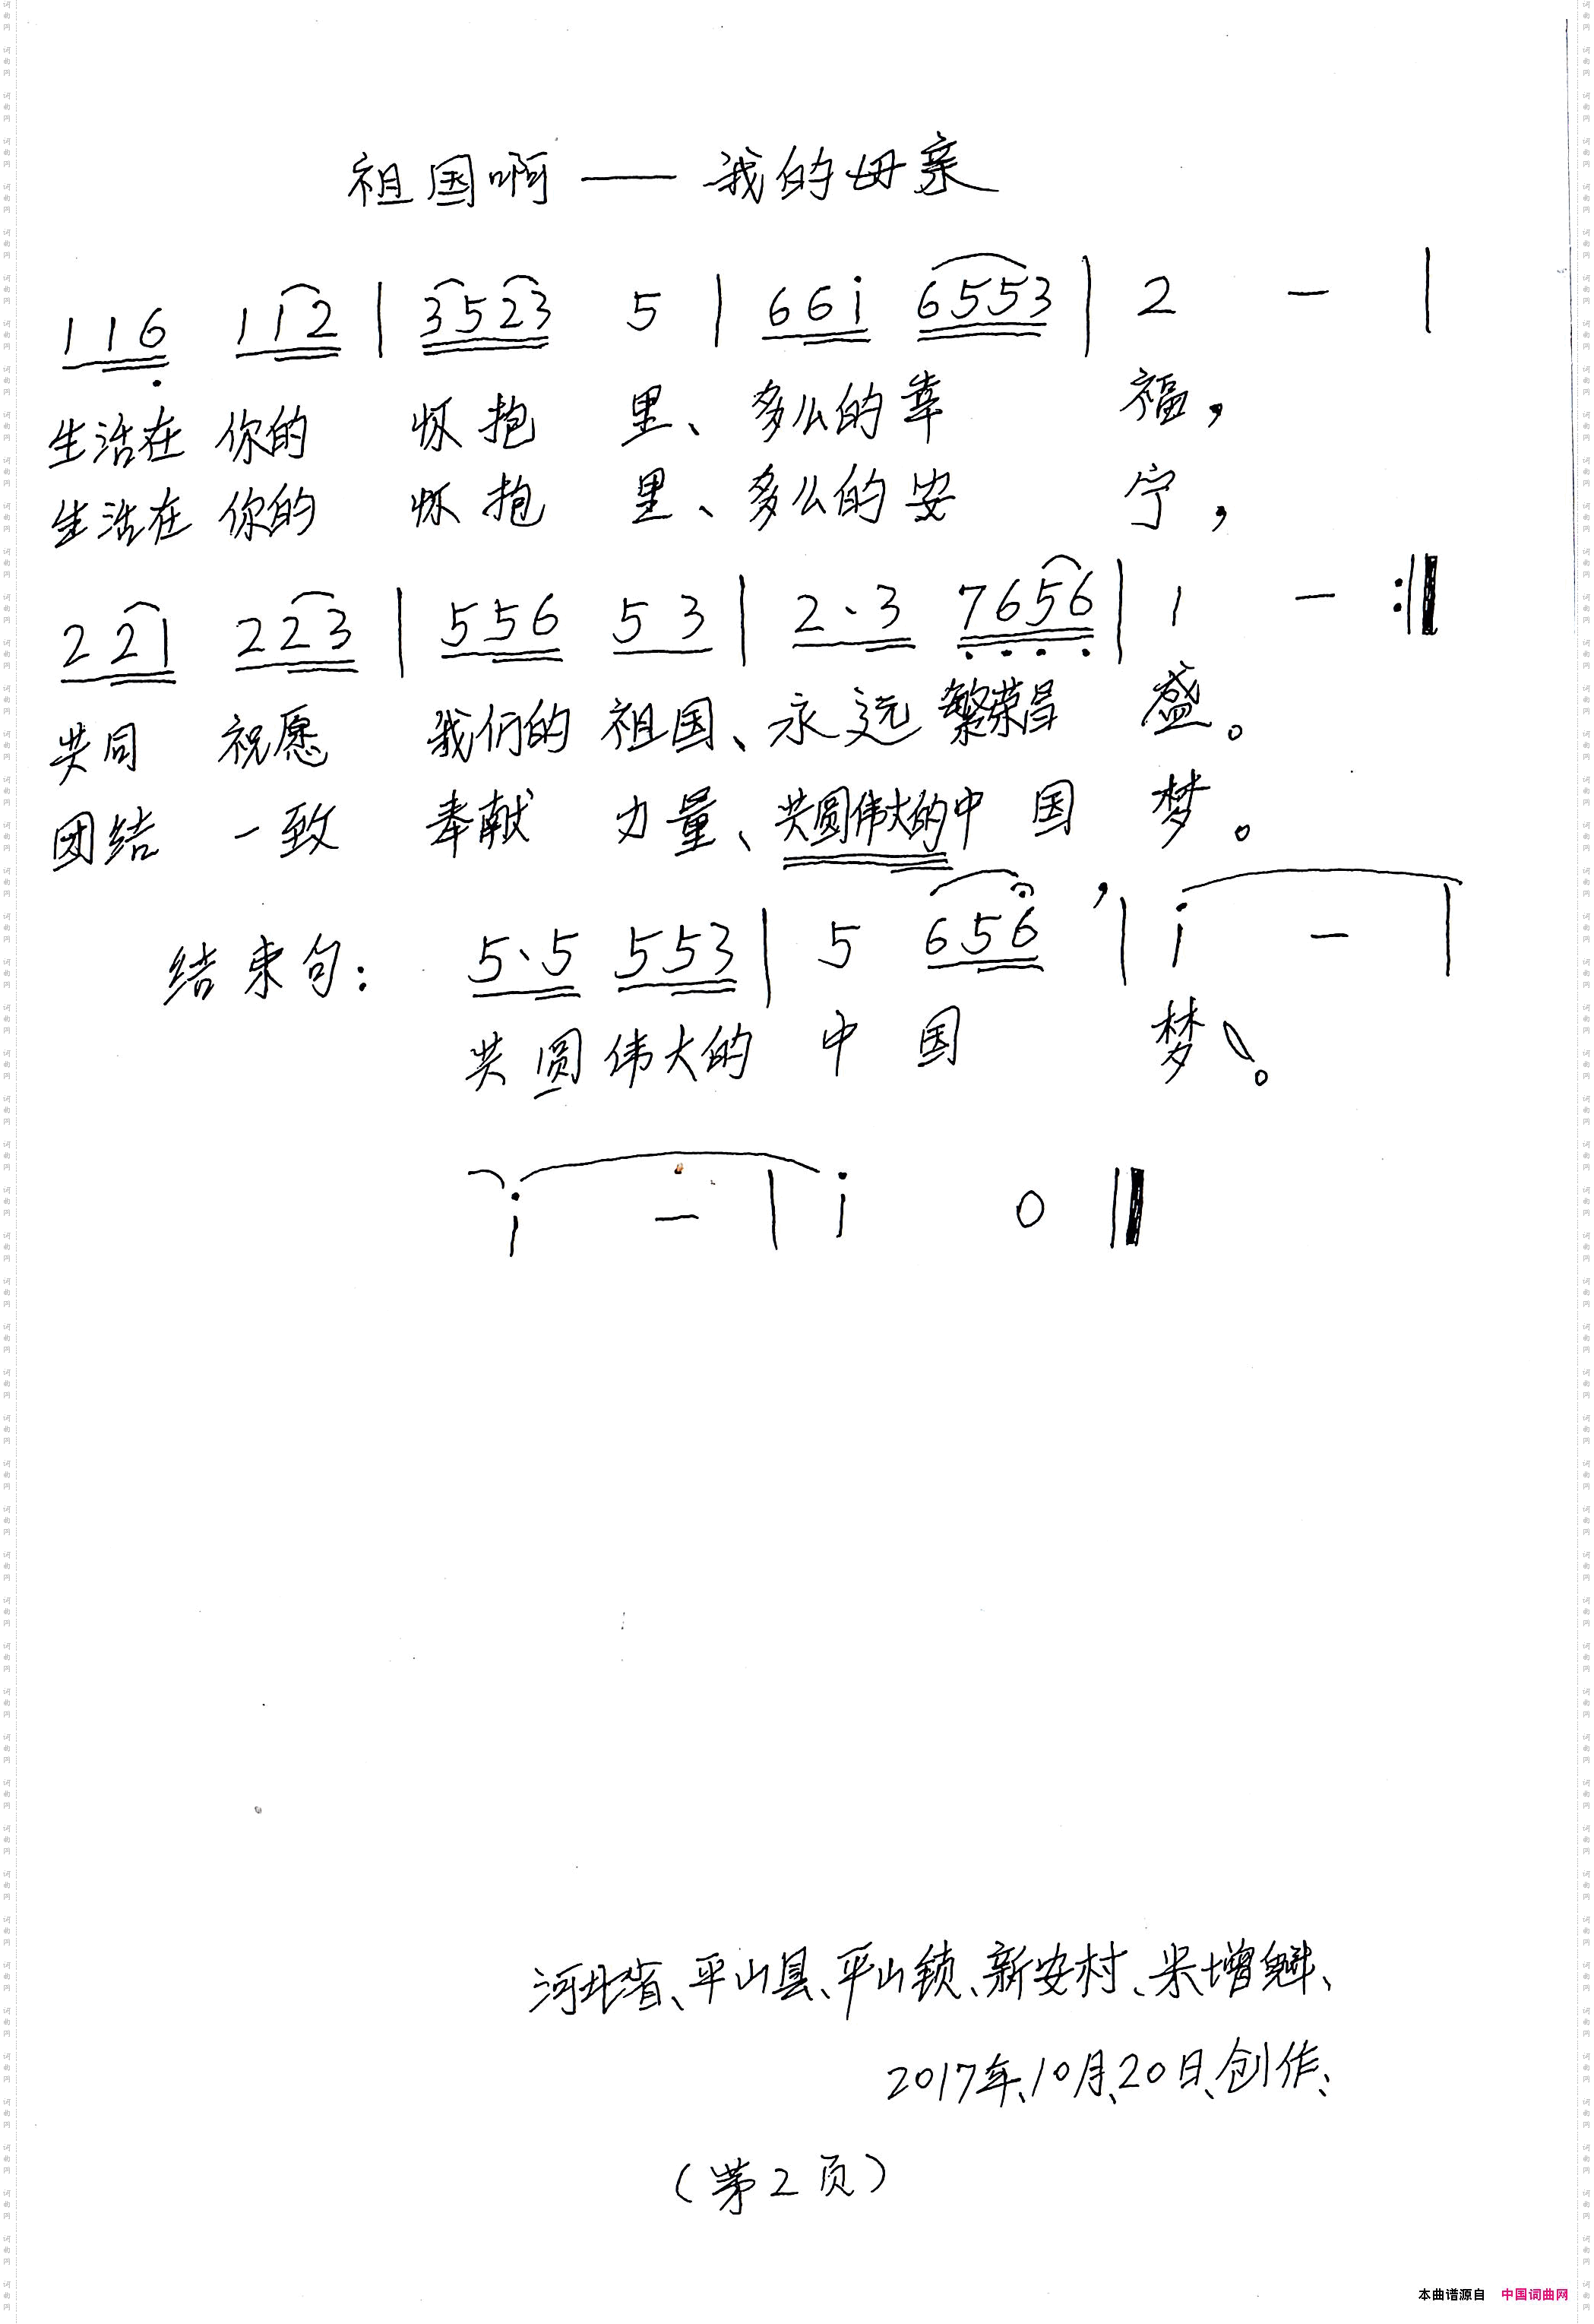 祖国啊——我的母亲
1 1 6̣ 1 1 2 | 3 5 2 3 5 | 6 6 i 6 5 5 3 | 2 — |
生活在 你的 怀抱 里、多么的幸 福，
生活在 你的 怀抱 里、多么的安 宁，
2 2 1 2 2 3 | 5 5 6 5 3 | 2 · 3 7̣ 6̣ 5̣ 6̣ | 1 — :‖
共同 祝愿 我们的 祖国、永远 繁荣昌 盛。
团结 一致 奉献 力量、共圆伟大的中 国 梦。
结束句： 5 · 5 5 5 3 | 5 6 5 6 ， | i — |
共圆 伟大的 中 国 梦。
i — | i 0 ‖
河北省、平山县、平山镇、新安村、米增
2017年、10月、20日、创作、
（第2页）
本曲谱源自 中国词曲网